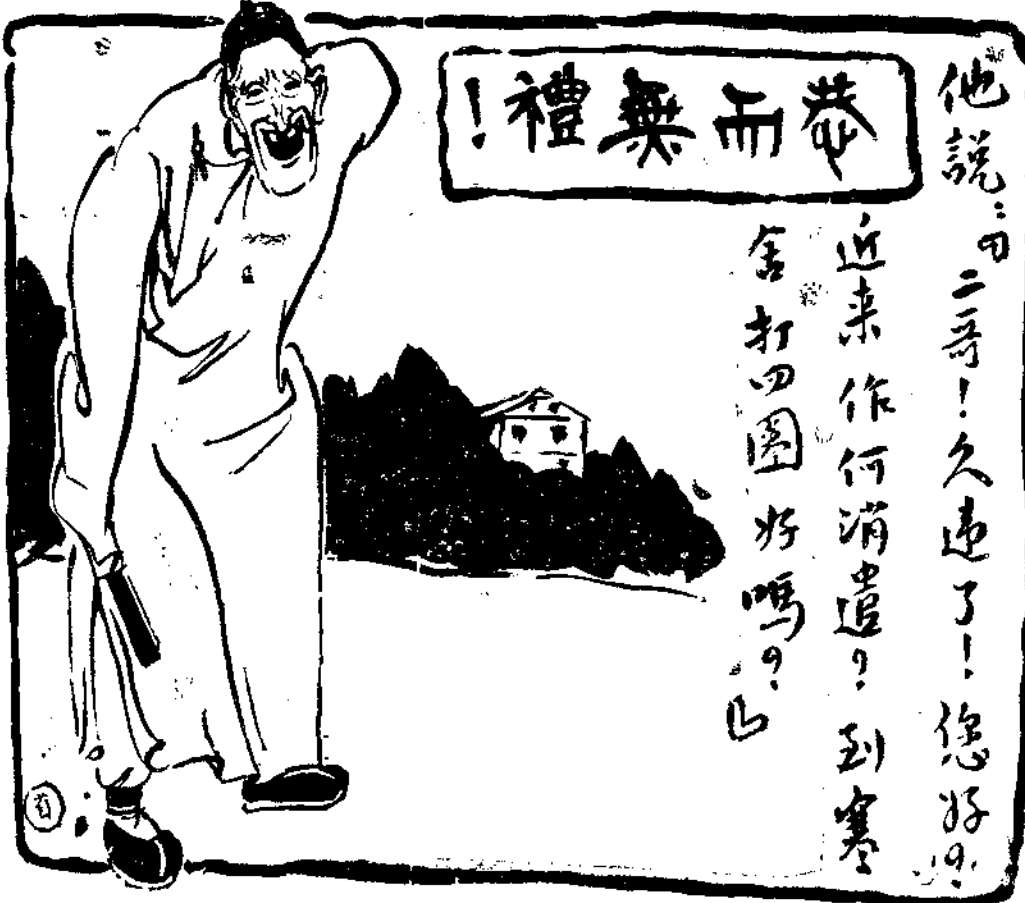 恭而無禮！
他説：「二哥！久违了！您好？
近来作何消遣？到寒
舍打四圈好嗎？」